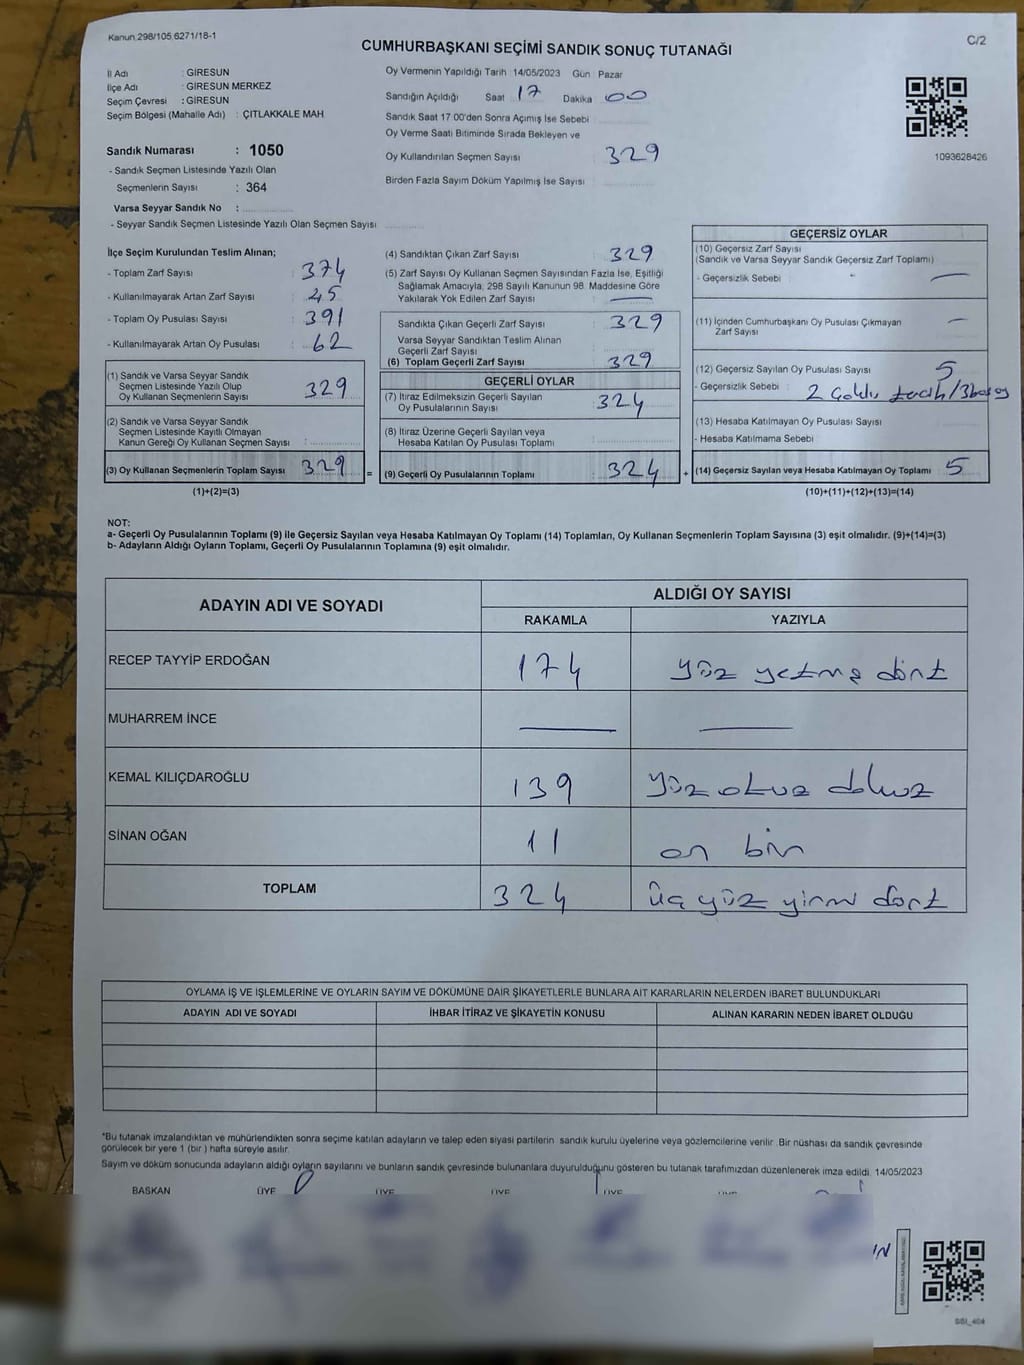 Kanun 298/105 6271/18-1
C/2
CUMHURBAŞKANI SEÇİMİ SANDIK SONUÇ TUTANAĞI
İl Adı : GİRESUN
İlçe Adı : GİRESUN MERKEZ
Seçim Çevresi : GİRESUN
Seçim Bölgesi (Mahalle Adı) : ÇITLAKKALE MAH
Sandık Numarası : 1050
- Sandık Seçmen Listesinde Yazılı Olan
Seçmenlerin Sayısı : 364
Varsa Seyyar Sandık No :
- Seyyar Sandık Seçmen Listesinde Yazılı Olan Seçmen Sayısı
Oy Vermenin Yapıldığı Tarih 14/05/2023 Gün : Pazar
Sandığın Açıldığı Saat 17 Dakika 00
Sandık Saat 17 00'den Sonra Açımış İse Sebebi
Oy Verme Saati Bitiminde Sırada Bekleyen ve
Oy Kullandırılan Seçmen Sayısı 329
Birden Fazla Sayım Döküm Yapılmış İse Sayısı
1093628426
İlçe Seçim Kurulundan Teslim Alınan;
- Toplam Zarf Sayısı : 374
- Kullanılmayarak Artan Zarf Sayısı : 45
- Toplam Oy Pusulası Sayısı : 391
- Kullanılmayarak Artan Oy Pusulası : 62
(1) Sandık ve Varsa Seyyar Sandık
Seçmen Listesinde Yazılı Olup
Oy Kullanan Seçmenlerin Sayısı : 329
(2) Sandık ve Varsa Seyyar Sandık
Seçmen Listesinde Kayıtlı Olmayan
Kanun Gereği Oy Kullanan Seçmen Sayısı :
(3) Oy Kullanan Seçmenlerin Toplam Sayısı : 329 =
(1)+(2)=(3)
(4) Sandıktan Çıkan Zarf Sayısı : 329
(5) Zarf Sayısı Oy Kullanan Seçmen Sayısından Fazla İse, Eşitliği
Sağlamak Amacıyla, 298 Sayılı Kanunun 98. Maddesine Göre
Yakılarak Yok Edilen Zarf Sayısı :
Sandıkta Çıkan Geçerli Zarf Sayısı : 329
Varsa Seyyar Sandıktan Teslim Alınan
Geçerli Zarf Sayısı
(6) Toplam Geçerli Zarf Sayısı : 329
GEÇERLİ OYLAR
(7) İtiraz Edilmeksizin Geçerli Sayılan
Oy Pusulalarının Sayısı : 324
(8) İtiraz Üzerine Geçerli Sayılan veya
Hesaba Katılan Oy Pusulası Toplamı :
(9) Geçerli Oy Pusulalarının Toplamı : 324 +
GEÇERSİZ OYLAR
(10) Geçersiz Zarf Sayısı
(Sandık ve Varsa Seyyar Sandık Geçersiz Zarf Toplamı)
- Geçersizlik Sebebi
(11) İçinden Cumhurbaşkanı Oy Pusulası Çıkmayan
Zarf Sayısı
(12) Geçersiz Sayılan Oy Pusulası Sayısı : 5
- Geçersizlik Sebebi : 2
(13) Hesaba Katılmayan Oy Pusulası Sayısı :
- Hesaba Katılmama Sebebi
(14) Geçersiz Sayılan veya Hesaba Katılmayan Oy Toplamı : 5
(10)+(11)+(12)+(13)=(14)
NOT:
a- Geçerli Oy Pusulalarının Toplamı (9) ile Geçersiz Sayılan veya Hesaba Katılmayan Oy Toplamı (14) Toplamları, Oy Kullanan Seçmenlerin Toplam Sayısına (3) eşit olmalıdır. (9)+(14)=(3)
b- Adayların Aldığı Oyların Toplamı, Geçerli Oy Pusulalarının Toplamına (9) eşit olmalıdır.
ADAYIN ADI VE SOYADI
ALDIĞI OY SAYISI
RAKAMLA YAZIYLA
RECEP TAYYİP ERDOĞAN 174 yüz yetmş dört
MUHARREM İNCE
KEMAL KILIÇDAROĞLU 139 yüz otuz dokuz
SİNAN OĞAN 11 on bir
TOPLAM 324 üç yüz yirmi dört
OYLAMA İŞ VE İŞLEMLERİNE VE OYLARIN SAYIM VE DÖKÜMÜNE DAİR ŞİKAYETLERLE BUNLARA AİT KARARLARIN NELERDEN İBARET BULUNDUKLARI
ADAYIN ADI VE SOYADI İHBAR İTİRAZ VE ŞİKAYETİN KONUSU ALINAN KARARIN NEDEN İBARET OLDUĞU
*Bu tutanak imzalandıktan ve mühürlendikten sonra seçime katılan adayların ve talep eden siyasi partilerin sandık kurulu üyelerine veya gözlemcilerine verilir. Bir nüshası da sandık çevresinde
görülecek bir yere 1 (bir ) hafta süreyle asılır.
Sayım ve döküm sonucunda adayların aldığı oyların sayılarını ve bunların sandık çevresinde bulunanlara duyurulduğunu gösteren bu tutanak tarafımızdan düzenlenerek imza edildi. 14/05/2023
BAŞKAN ÜYE ÜYE ÜYE ÜYE